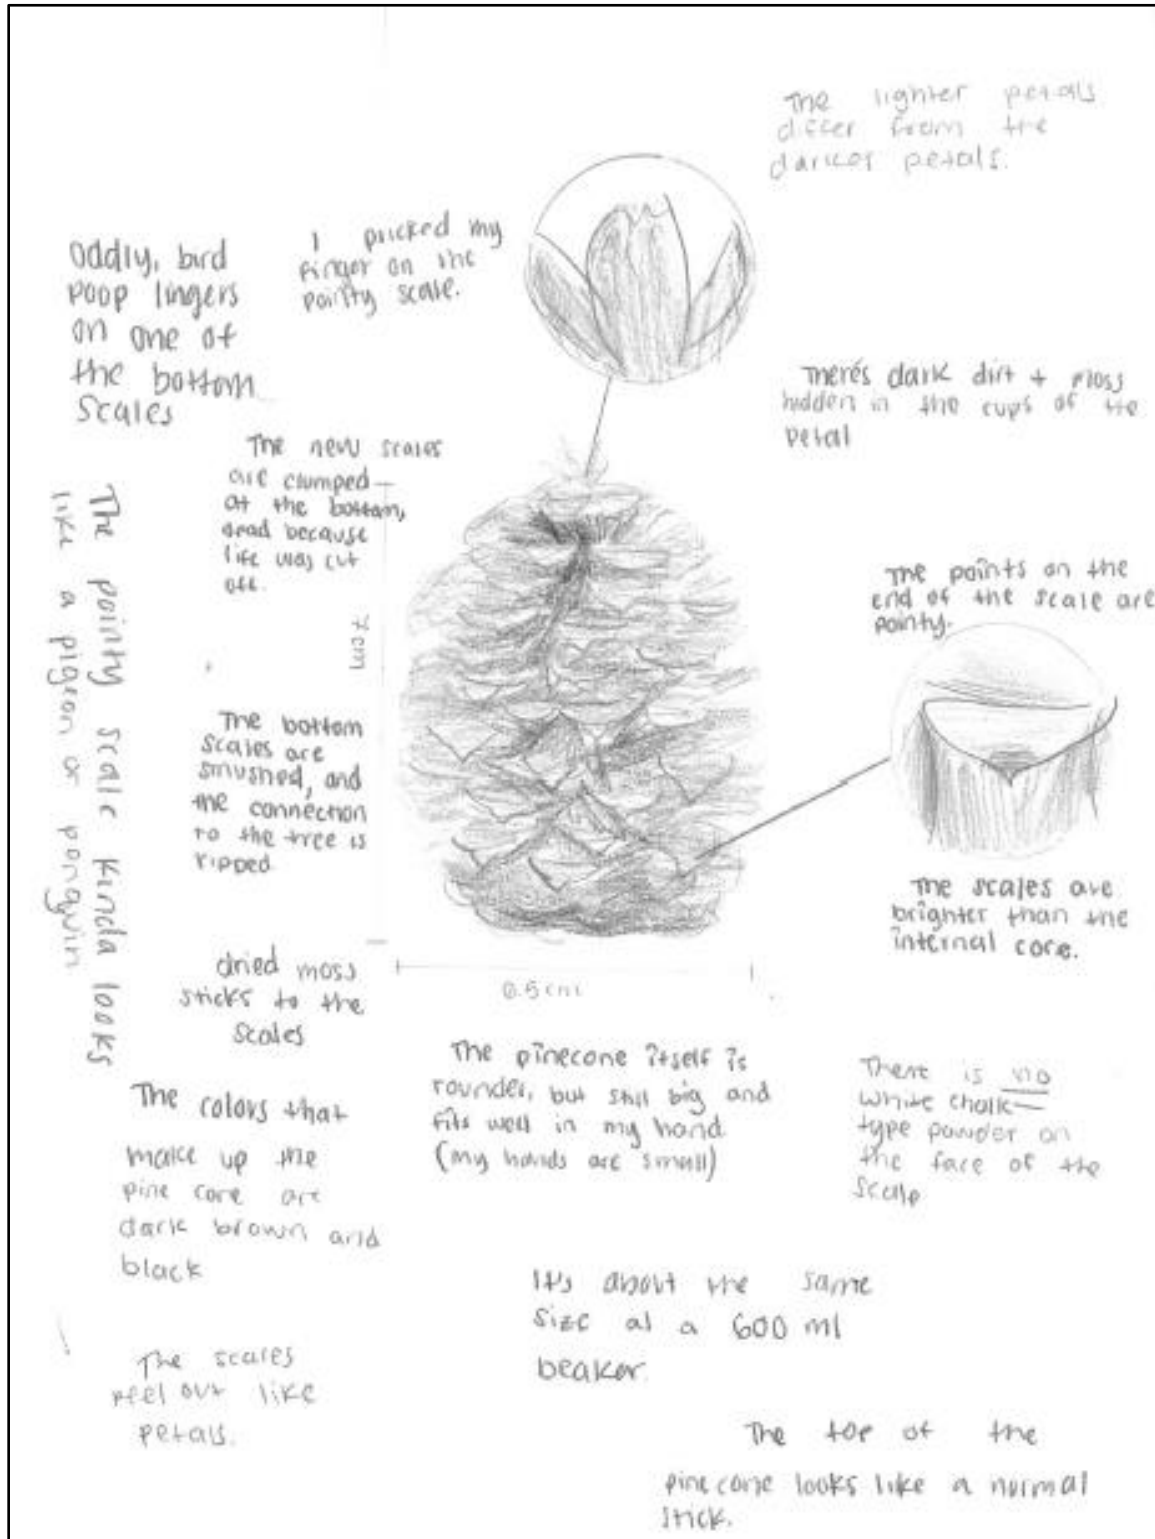 The lighter petals
differ from the
darker petals.
I pricked my
finger on the
pointy scale.
Oddly, bird
poop lingers
on one of
the bottom
scales
There's dark dirt + moss
hidden in the cups of the
petal
The new scales
are clumped
at the bottom,
dead because
life was cut
off.
The points on the
end of the scale are
pointy.
The pointy scale kinda looks
like a pigeon or penguin
7cm
The bottom
scales are
smushed, and
the connection
to the tree is
ripped.
The scales are
brighter than the
internal core.
dried moss
sticks to the
scales
6.5cm
The pinecone itself is
rounder, but still big and
fits well in my hand
(my hands are small)
There is no
white chalk-
type powder on
the face of the
scale
The colors that
make up the
pine cone are
dark brown and
black
It's about the same
size as a 600 ml
beaker.
The scales
peel out like
petals.
The top of the
pinecone looks like a normal
stick.